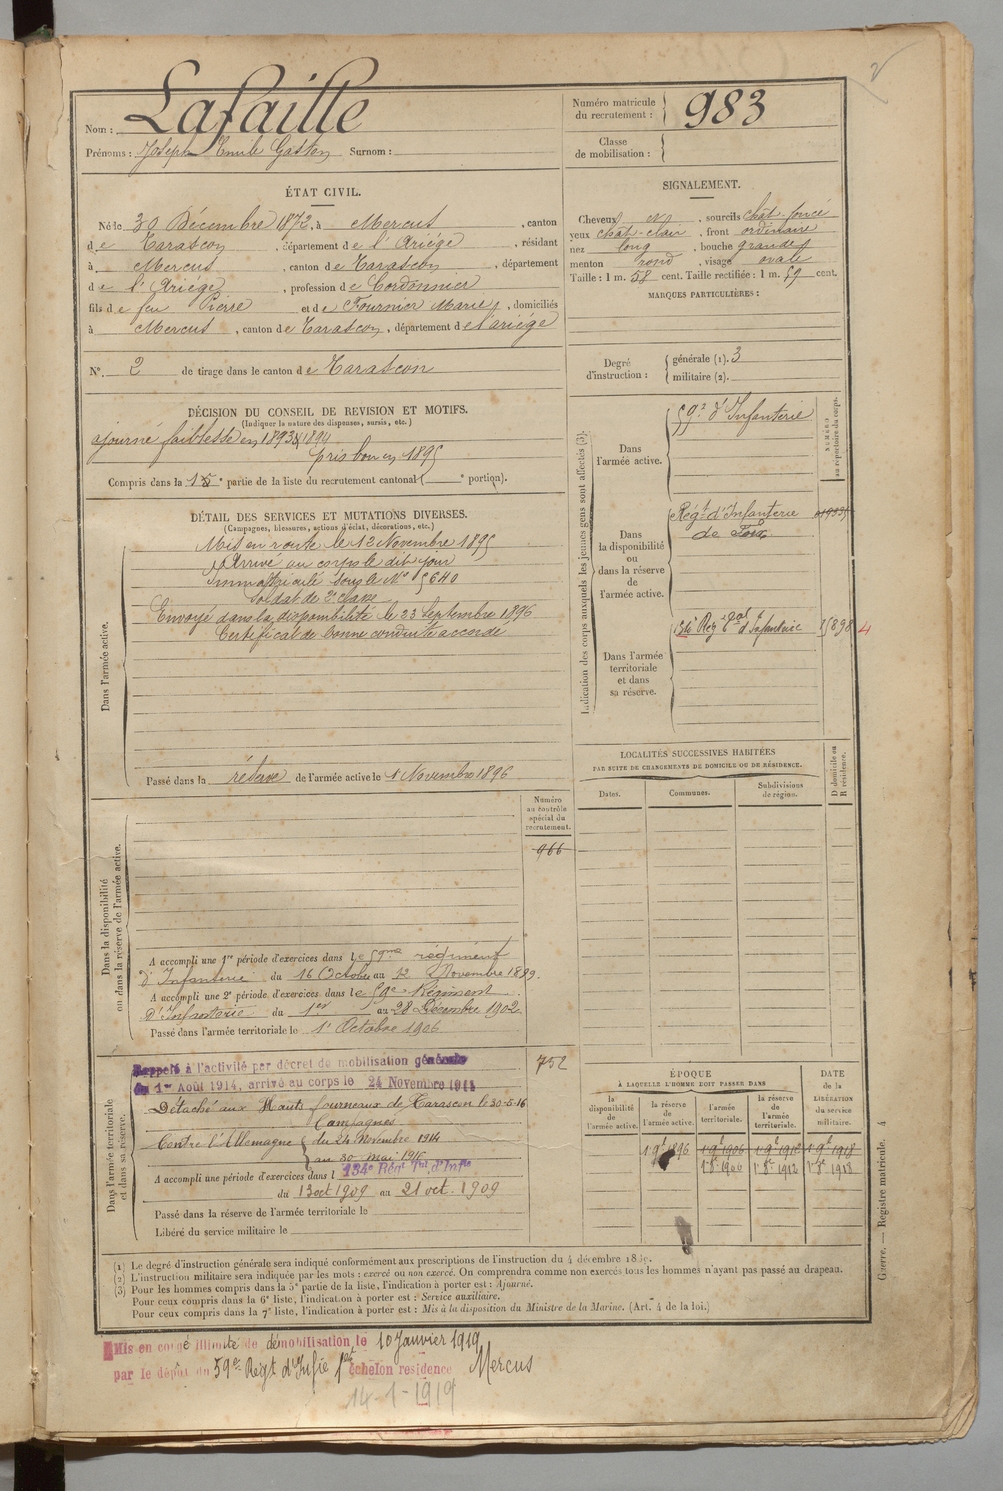 2
Nom : Lafaille
Prénoms : Joseph Emile Gaston Surnom :
Numéro matricule
du recrutement : 983
Classe
de mobilisation :
ÉTAT CIVIL.
Né le 30 Décembre 1872, à Mercus, canton
de Tarascon, département de l'Ariége, résidant
à Mercus, canton de Tarascon, département
de l'Ariége, profession de Cordonnier
fils de feu Pierre et de Fournier Marie, domiciliés
à Mercus, canton de Tarascon, département de l'ariége
N° 2 de tirage dans le canton de Tarascon
SIGNALEMENT.
Cheveux N, sourcils chât-foncé
yeux chât-clair, front ordinaire
nez long, bouche grande
menton rond, visage ovale
Taille : 1 m. 58 cent. Taille rectifiée : 1 m. 59 cent.
MARQUES PARTICULIÈRES :
Degré
d'instruction :
générale (1). 3
militaire (2).
DÉCISION DU CONSEIL DE REVISION ET MOTIFS.
(Indiquer la nature des dispenses, sursis, etc.)
ajourné faiblesse en 1893 & 1894
pris bon en 1895
Compris dans la partie de la liste du recrutement cantonal ( portion).
DÉTAIL DES SERVICES ET MUTATIONS DIVERSES.
(Campagnes, blessures, actions d'éclat, décorations, etc.)
Dans l'armée active.
Mis en route le 12 Novembre 1895
Arrivé au corps le dit jour
Immatriculé sous le N° 5640
Soldat de 2e classe
Envoyé dans la disponibilité le 23 Septembre 1896
Certificat de bonne conduite accordé
Passé dans la réserve de l'armée active le 1 Novembre 1896
Indication des corps auxquels les jeunes gens sont affectés (3).
NUMÉRO
au répertoire du corps.
Dans
l'armée active.
59e d'Infanterie
Dans
la disponibilité
ou
dans la réserve
de
l'armée active.
Régt d'Infanterie
de Foix
Dans l'armée
territoriale
et dans
sa réserve.
134e Rég. Tal d'Infanterie 15898 4
LOCALITÉS SUCCESSIVES HABITÉES
PAR SUITE DE CHANGEMENTS DE DOMICILE OU DE RÉSIDENCE.
Dates.
Communes.
Subdivisions
de région.
D domicile ou
R résidence.
Dans la disponibilité
ou dans la réserve de l'armée active.
Numéro
au contrôle
spécial du
recrutement.
966
A accompli une 1re période d'exercices dans le 59me régiment
d'Infanterie du 16 Octobre au 12 Novembre 1899.
A accompli une 2e période d'exercices dans le 59e Régiment
d'Infanterie du 1er au 28 Décembre 1902
Passé dans l'armée territoriale le 1r Octobre 1906
Dans l'armée territoriale
et dans sa réserve.
752
Rappelé à l'activité par décret de mobilisation générale
du 1er Août 1914, arrivé au corps le 24 Novembre 1914
Détaché aux Hauts fourneaux de Tarascon le 30-5-16
Campagnes
Contre l'Allemagne du 24 Novembre 1914
au 30 mai 1916
A accompli une période d'exercices dans l 134e Régt Tal d'Infie
du 13 oct 1909 au 21 oct. 1909
Passé dans la réserve de l'armée territoriale le
Libéré du service militaire le
ÉPOQUE
À LAQUELLE L'HOMME DOIT PASSER DANS
la
disponibilité
de
l'armée active.
la réserve
de
l'armée active.
l'armée
territoriale.
la réserve
de
l'armée
territoriale.
DATE
de la
LIBÉRATION
du service
militaire.
1 9e 1896 1 9e 1906 1 9e 1912 1 9e 1918
1r 8e 1906 1r 8e 1912 1r 8e 1918
(1) Le degré d'instruction générale sera indiqué conformément aux prescriptions de l'instruction du 4 décembre 1889.
(2) L'instruction militaire sera indiquée par les mots : exercé ou non exercé. On comprendra comme non exercés tous les hommes n'ayant pas passé au drapeau.
(3) Pour les hommes compris dans la 5e partie de la liste, l'indication à porter est : Ajourné.
Pour ceux compris dans la 6e liste, l'indication à porter est : Service auxiliaire.
Pour ceux compris dans la 7e liste, l'indication à porter est : Mis à la disposition du Ministre de la Marine. (Art. 4 de la loi.)
Guerre. — Registre matricule. 4
Mis en congé illimité de démobilisation le 10 Janvier 1919
par le dépôt du 59e Régt d'Infie 1er échelon residence Mercus
14-1-1919